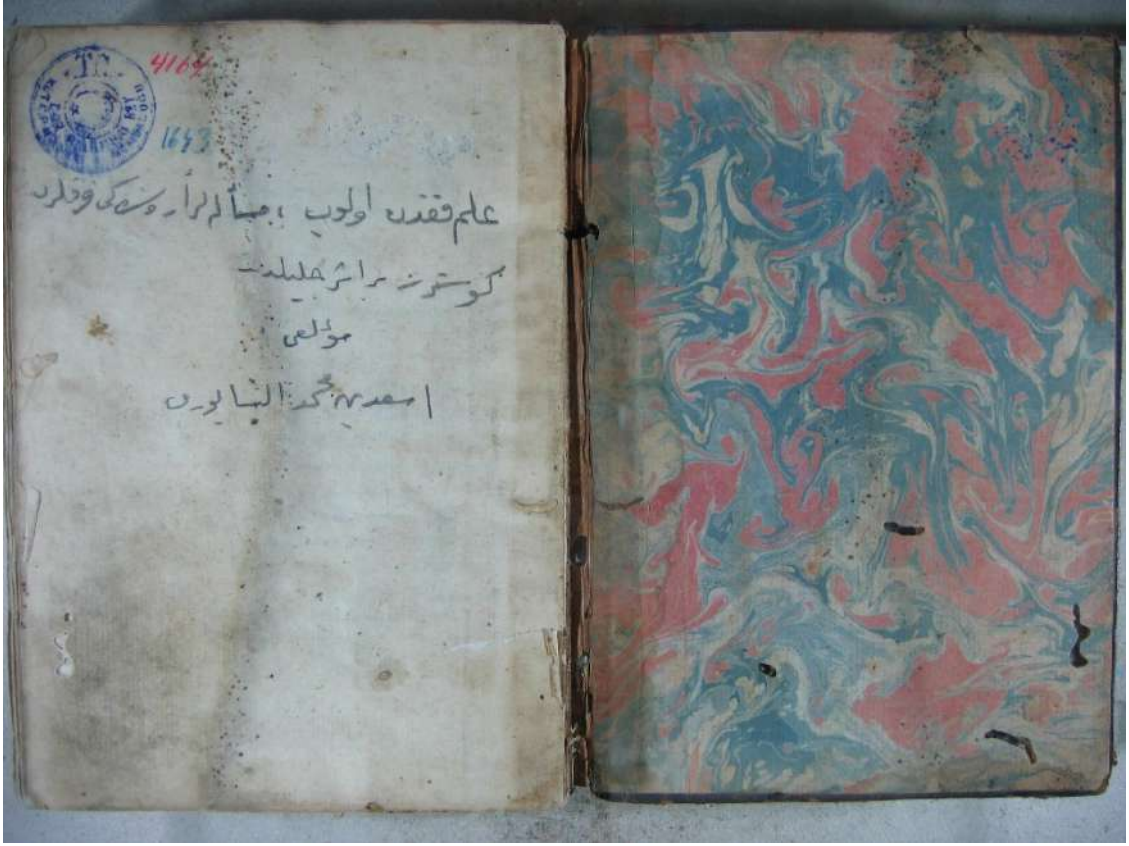 4164
1643
علم فقدن اولوب ؛ مسأله لر آره سنده كى فرقلرى
كوسترن بر اثر جليلدر
مؤلفى
اسعد بن محمد النيسابورى